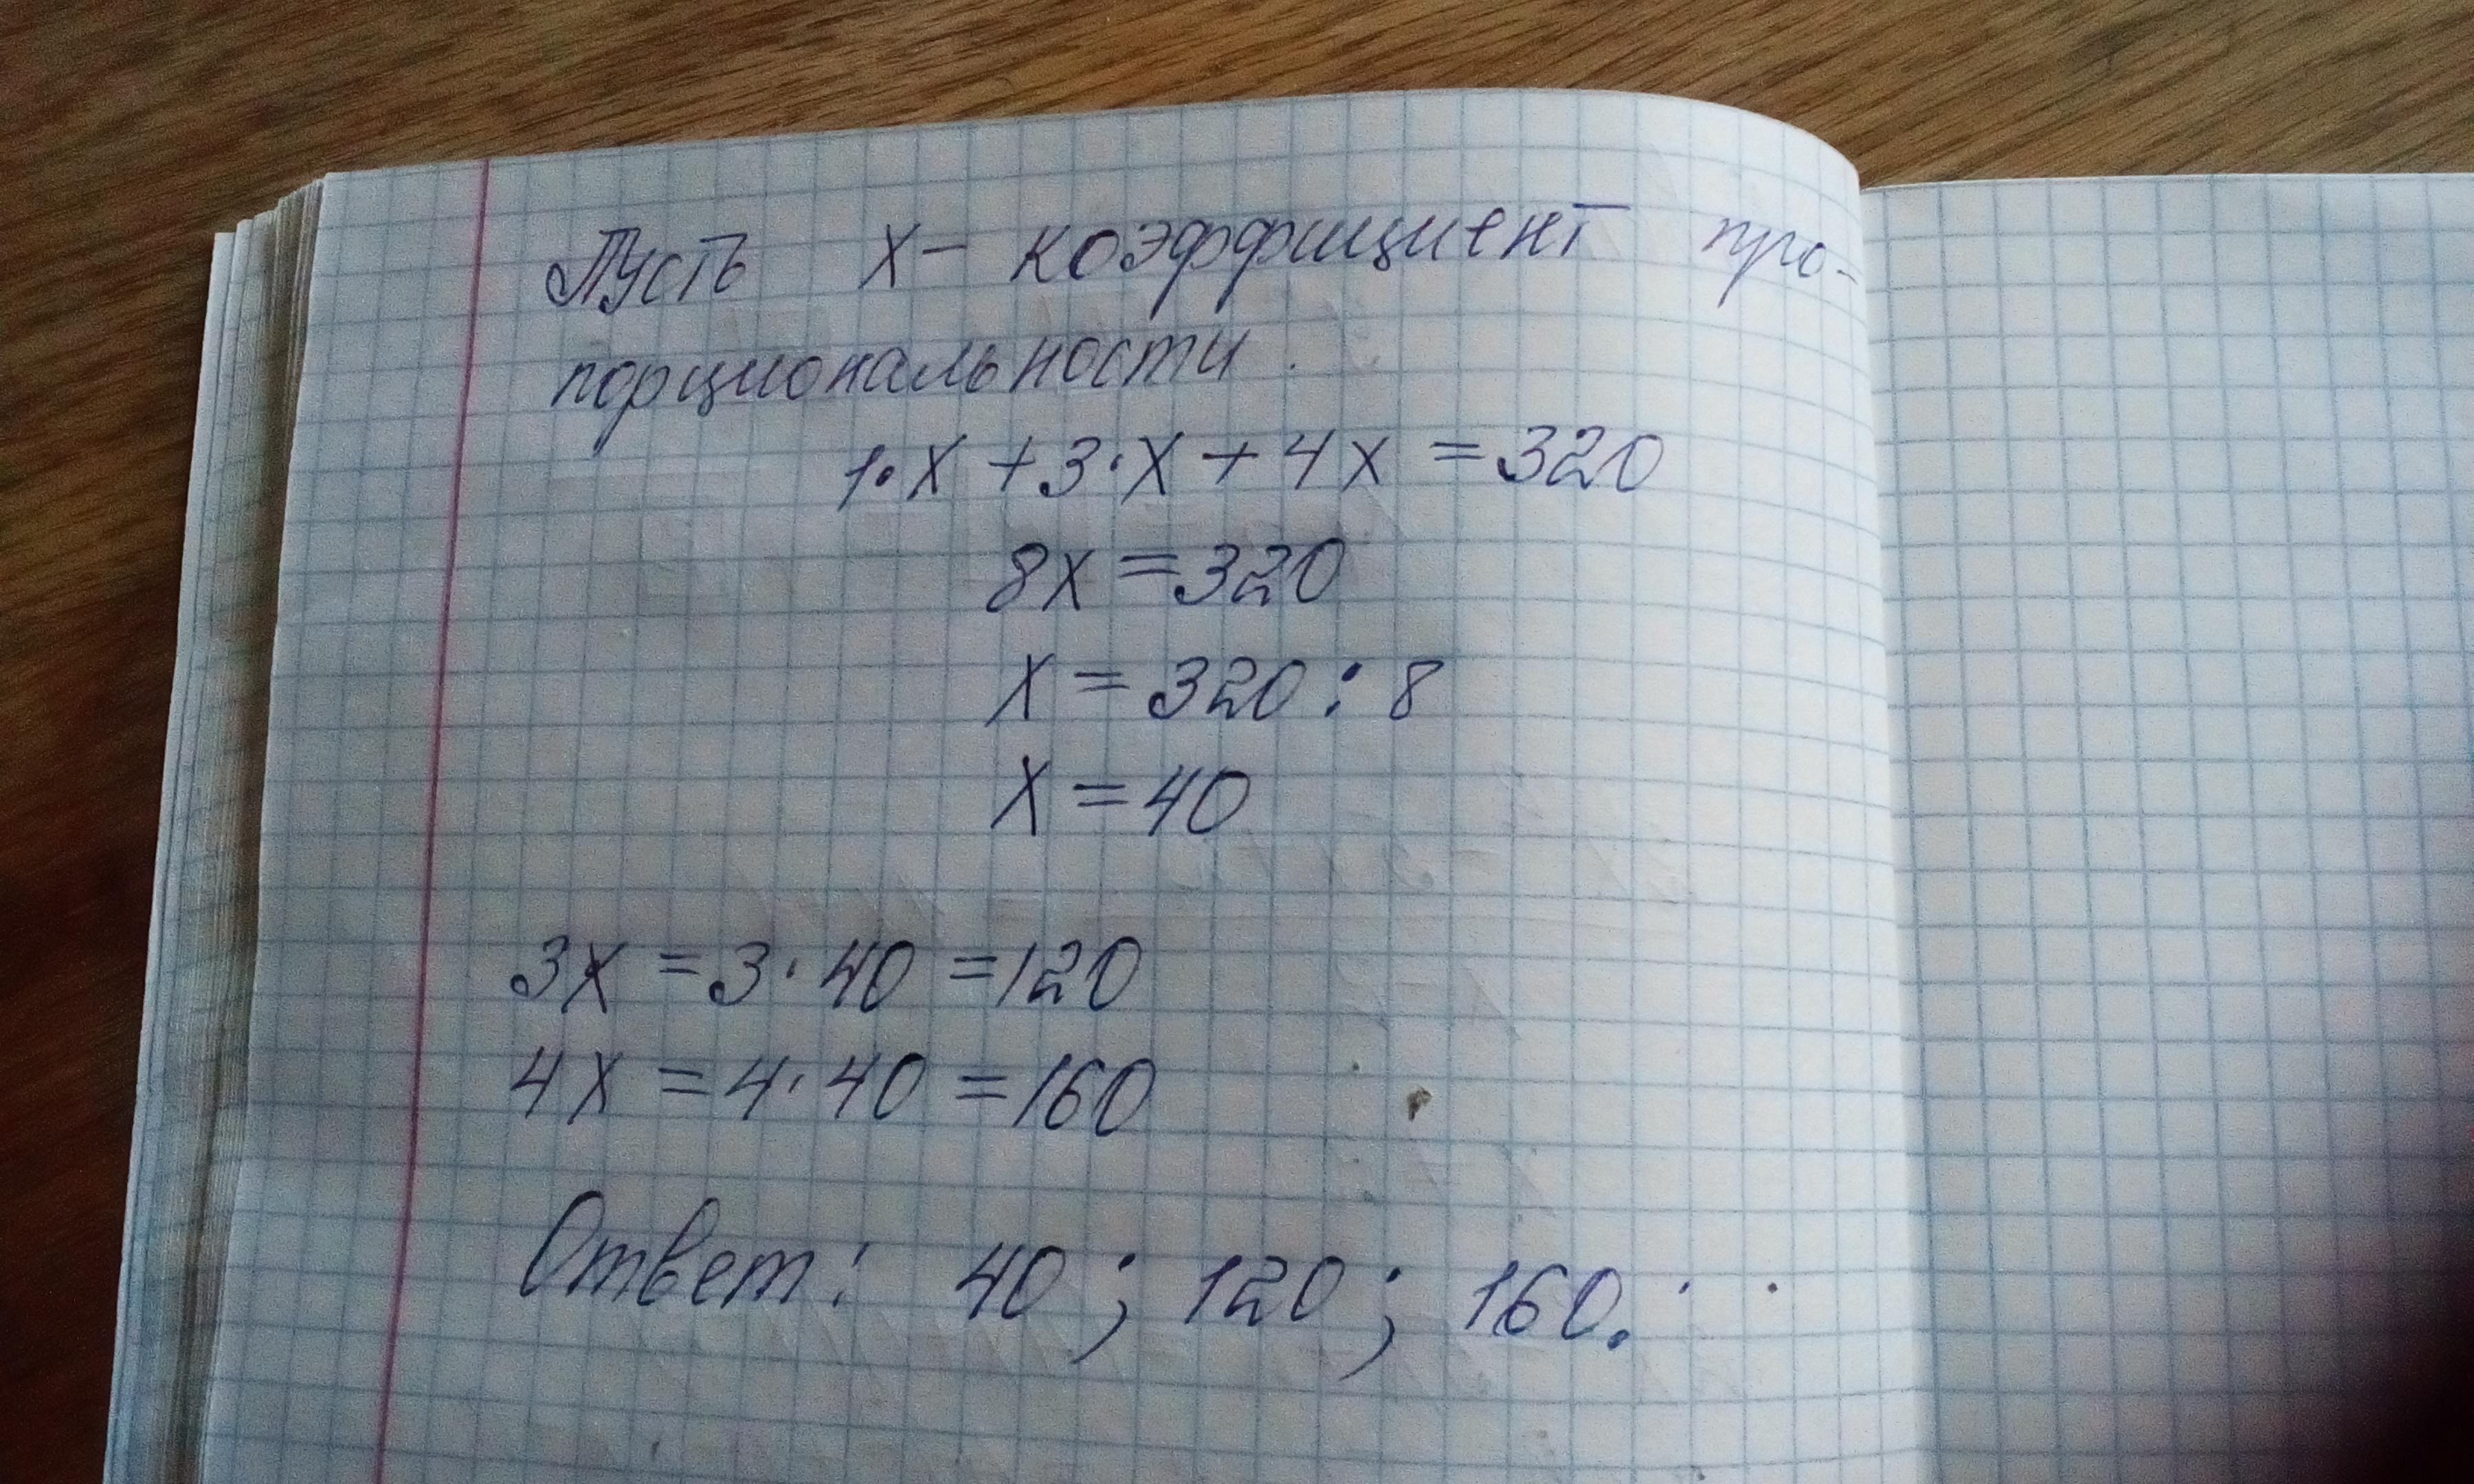 Пусть x- коэффициент про-
порциональности.
1·x+3·x+4x=320
8x=320
x=320:8
x=40
3x=3·40=120
4x=4·40=160
Ответ: 40; 120; 160.